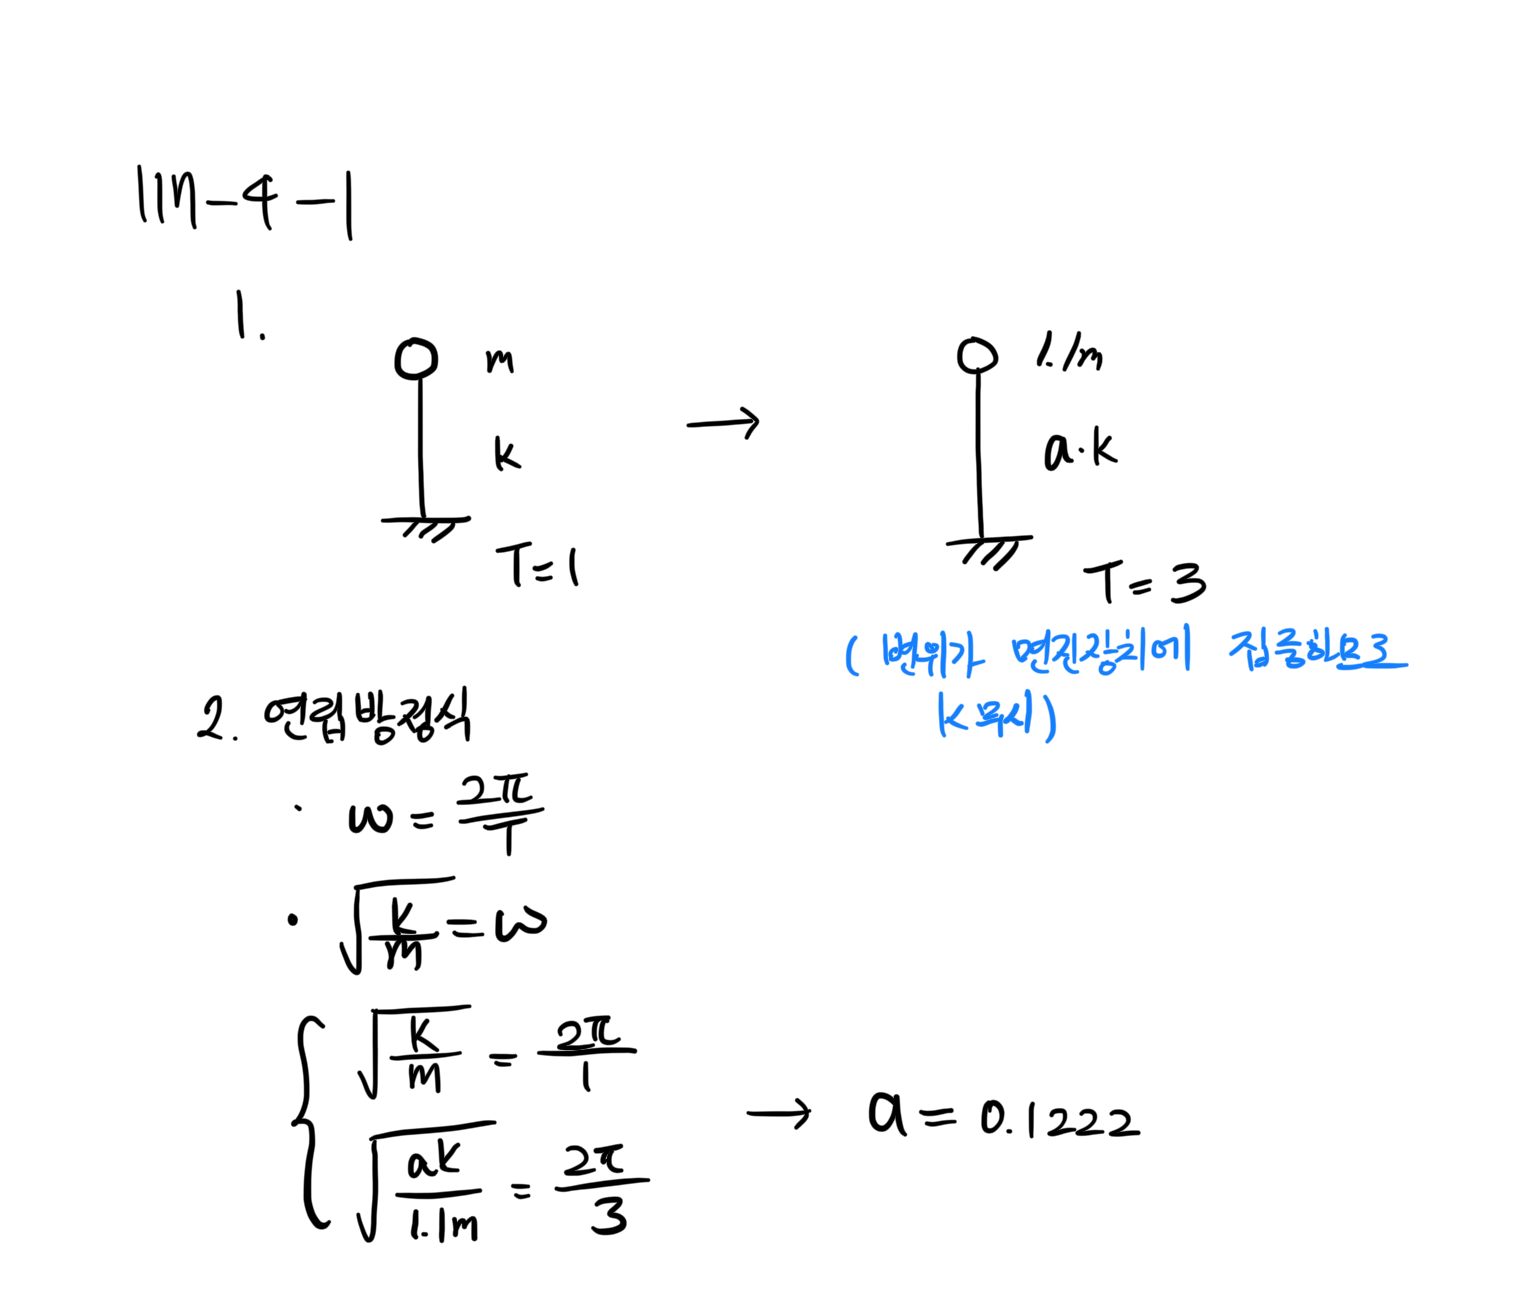 117-4-1
1.
m 1.1m
k → a·k
T=1 T=3
(변위가 면진장치에 집중하므로
k무시)
2. 연립방정식
· ω = 2π/T
· √(k/m) = ω
{ √(k/m) = 2π/1
√(ak/1.1m) = 2π/3 → a = 0.1222